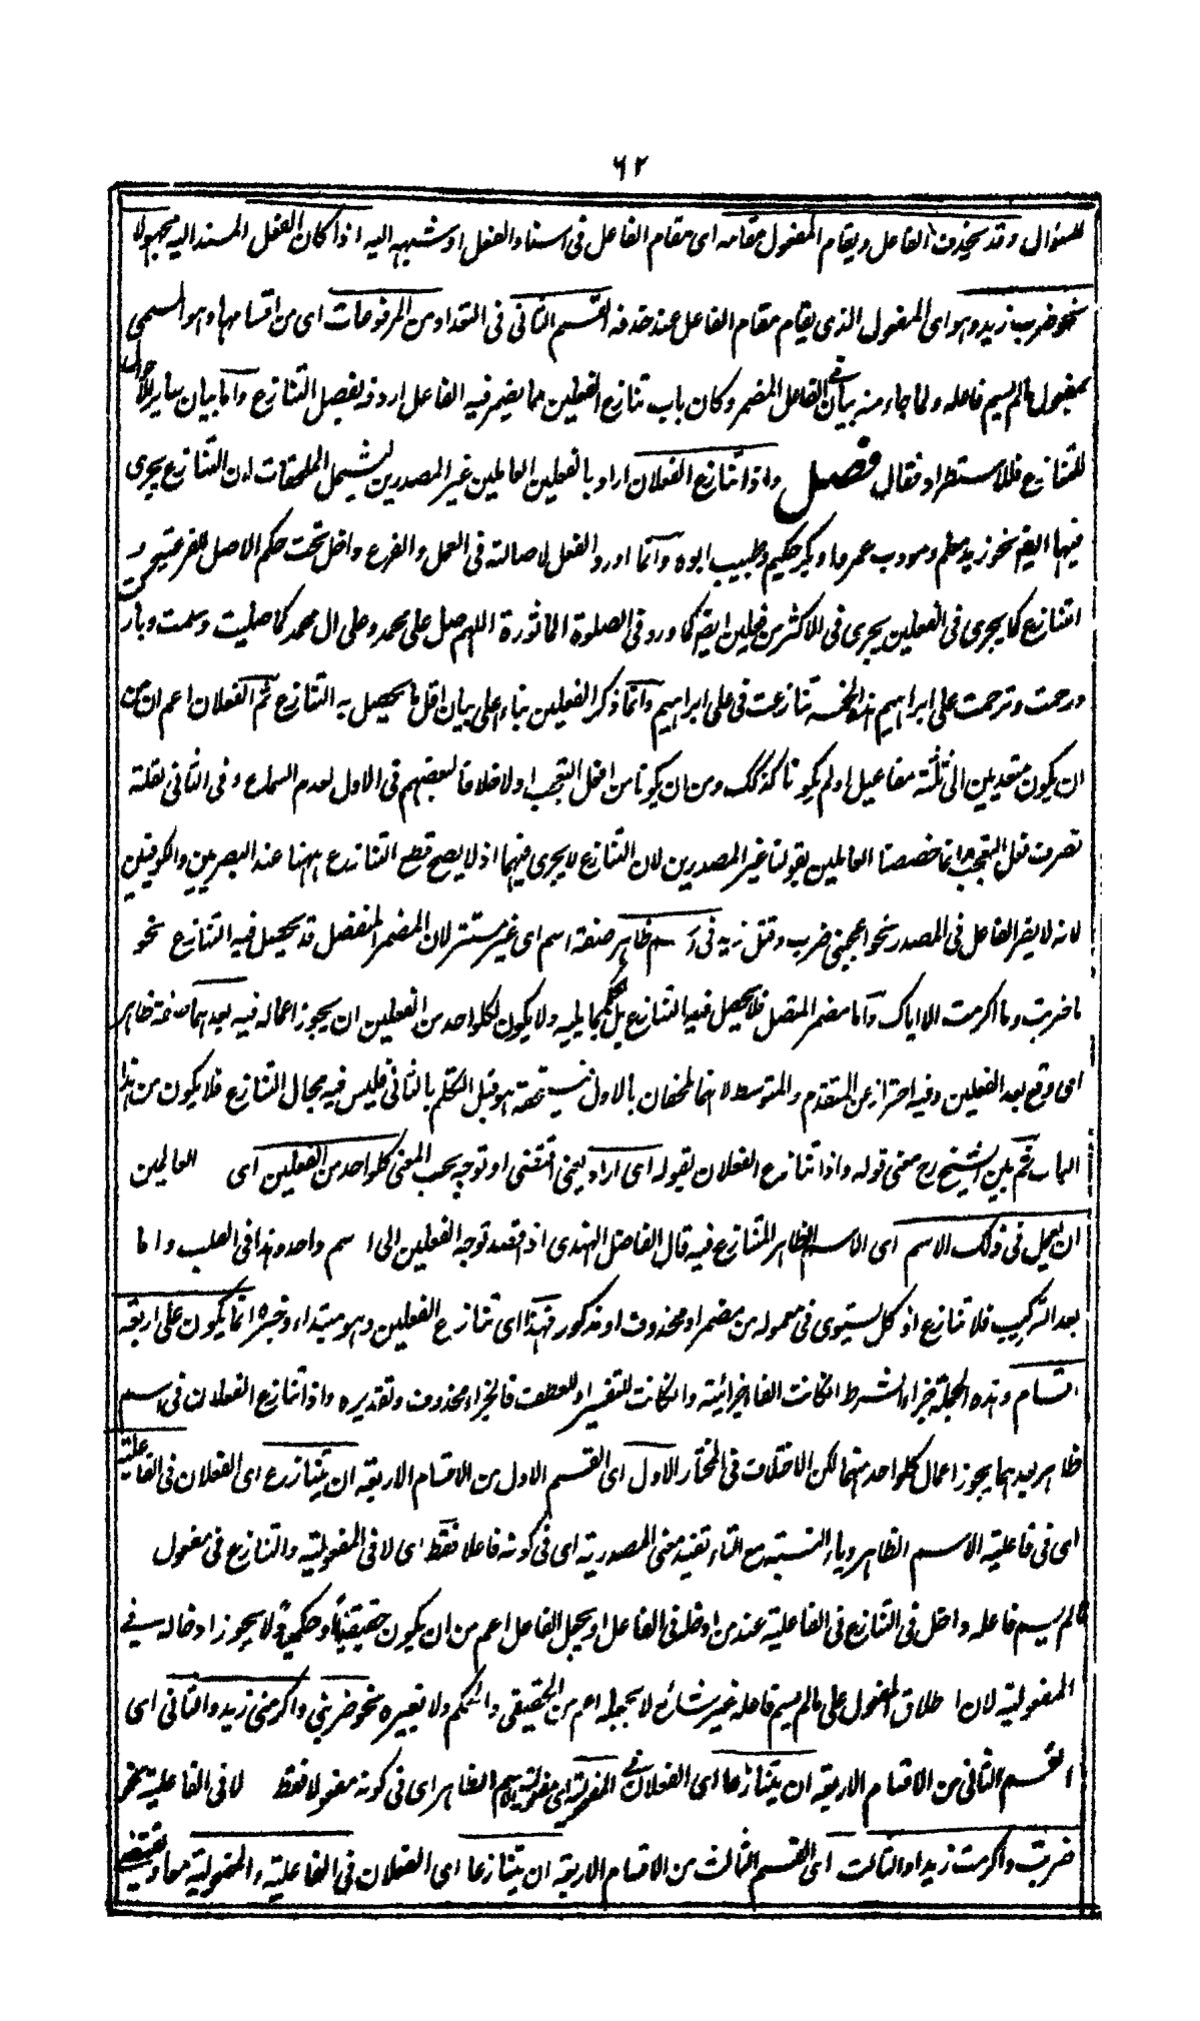 ٦٢
للسؤال وقد يحذف الفاعل ويقام المفعول مقامه اى مقام الفاعل فى اسناد الفعل او شبهه اليه اذا كان الفعل المسند اليه مجهولا
نحو ضرب زيد وهو اى المفعول الذى يقام مقام الفاعل عند حذفه القسم الثانى فى التعداد من المرفوعات اى من اقسامها وهو المسمى
بمفعول مالم يسم فاعله ولما جاء منه بيان الفاعل المضمر وكان باب تنازع الفعلين مما يضمر فيه الفاعل اردفه بفصل التنازع واما بيان سائر الاحوال
للتنازع فللاستطراد فقال فصل واذا تنازع الفعلان اراد بالفعلين العاملين غير المصدرين ليشمل الملحقات لان التنازع يجرى
فيها ايضا نحو زيد معلم ومودب عمروا وبكر حكيم وطبيب ابوه وانما اورد الفعل لاصالته فى العمل والفرع داخل تحت حكم الاصل للفرعية
التنازع كما يجرى فى الفعلين يجرى فى الاكثر من فعلين ايضا كما ورد فى الصلوة الماثورة اللهم صل على محمد وعلى ال محمد كما صليت وسلمت وبار
ورحمت وترحمت على ابراهيم هذه الخمسة تنازعت فى على ابراهيم وانما ذكر الفعلين بناء على بيان اقل ما يحصل به التنازع ثم الفعلان اعم ان
ان يكون متعديين الى ثلثة مفاعيل او لم يكونا كذلك ومن ان يكونا من افعل التعجب او لا خلافا لبعضهم فى الاول لعدم السماع وفى الثانى لقلة
تصرف فعل التعجب وانما خصصنا العاملين بقولنا غير المصدرين لان التنازع لا يجرى فيهما اذ لا يصح قطع التنازع ههنا عند البصريين والكوفيين
لانه لا يضمر الفاعل فى المصدر نحو اعجبنى ضرب وقتل زيد فى اسم ظاهر صفة اسم اى غير مستتر لان المضمر المنفصل قد يحصل فيه التنازع نحو
ما ضربت وما اكرمت الا اياك واما مضمر المتصل فلا يحصل فيه التنازع بل بما يليه ولا يكون لكل واحد من الفعلين ان يجوز اعماله فيه بعدهما صفة ظاهر
اى وقع بعد الفعلين وفيه احتراز عن المتقدم والمتوسط لانهما ملحقان بالاول هو قبل التكلم بالثانى فليس فيه مجال التنازع فلا يكون من هذا
الباب ثم بين الشيخ رح معنى قوله واذا تنازع الفعلان بقوله اى اراد يعنى اقتضى او توجه بحسب المعنى كل واحد من الفعلين اى العاملين
ان يعمل فى ذلك الاسم اى الاسم الظاهر المتنازع فيه قال الفاضل الهندى اذ قصد توجه الفعلين الى اسم واحد وهذا فى الطلب واما
بعد التركيب فلا تنازع اذ كل يستوى فى معموله من مضمر او محذوف او مذكور فهذا اى تنازع الفعلين وهو مبتداء وخبره انما يكون على اربعة
اقسام وهذه الجملة جزاء الشرط ان كانت الفا جزائية وان كانت للتفسير او للعطف فالجزاء محذوف وتقديره واذا تنازع الفعلان فى اسم
ظاهر بعدهما يجوز اعمال كل واحد منهما لكن الاختلاف فى المختار الاول اى القسم الاول من الاقسام الاربعة ان يتنازع اى الفعلان فى الفاعلية
اى فى فاعلية الاسم الظاهر وياء النسبة مع التاء تفيد معنى المصدرية اى فى كونه فاعلا فقط اى لا فى المفعولية والتنازع فى مفعول
مالم يسم فاعله داخل فى التنازع فى الفاعلية عند من ادخله فى الفاعل او يجعل الفاعل اعم من ان يكون حقيقيا او حكميا ولا يجوز ادخاله فى
المفعولية لان اطلاق المفعول على مالم يسم فاعله غير شائع لا بجعله اعم من الحقيقى والحكم ولا بغيره نحو ضربنى واكرمنى زيد والثانى اى
القسم الثانى من الاقسام الاربعة ان يتنازعا اى الفعلان فى المفعولية اى مفعولية الاسم الظاهر اى فى كونه مفعولا فقط لا فى الفاعلية نحو
ضربت واكرمت زيدا والثالث اى القسم الثالث من الاقسام الاربعة ان يتنازعا اى الفعلان فى الفاعلية والمفعولية معا ويقتضى